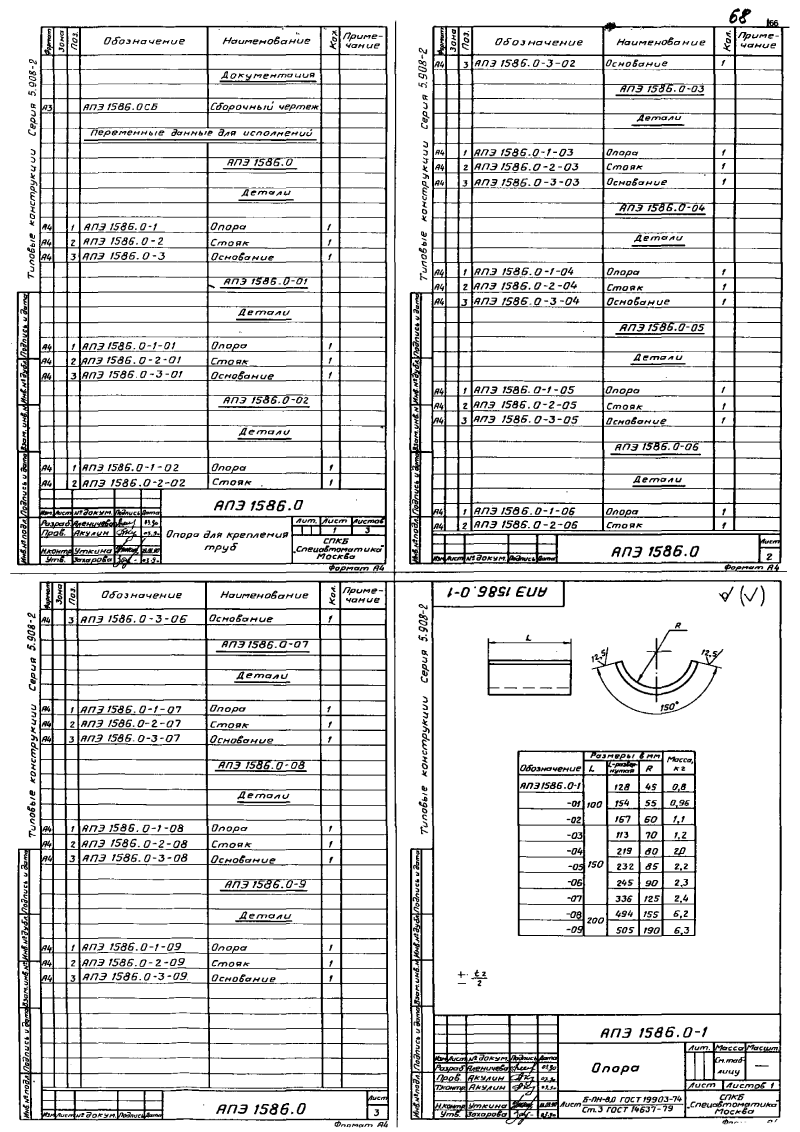 68 166
Типовые конструкции Серия 5.908-2
Формат Зона Поз. Обозначение Наименование Кол. Примечание
Документация
А3 АПЭ 1586.0СБ Сборочный чертеж
Переменные данные для исполнений
АПЭ 1586.0
Детали
А4 1 АПЭ 1586.0-1 Опора 1
А4 2 АПЭ 1586.0-2 Стояк 1
А4 3 АПЭ 1586.0-3 Основание 1
АПЭ 1586.0-01
Детали
А4 1 АПЭ 1586.0-1-01 Опора 1
А4 2 АПЭ 1586.0-2-01 Стояк 1
А4 3 АПЭ 1586.0-3-01 Основание 1
АПЭ 1586.0-02
Детали
А4 1 АПЭ 1586.0-1-02 Опора 1
А4 2 АПЭ 1586.0-2-02 Стояк 1
Инв.№подл. Подпись и дата Взам.инв.№ Инв.№дубл. Подпись и дата
АПЭ 1586.0
Изм Лист №докум. Подпись Дата
Разраб. Аленичева
Пров. Акулин
Н.контр. Уткина
Утв. Захарова
Опора для крепления труб
Лит. Лист Листов
1 3
СПКБ
"Спецавтоматика"
Москва
Формат А4
Типовые конструкции Серия 5.908-2
Формат Зона Поз. Обозначение Наименование Кол. Примечание
А4 3 АПЭ 1586.0-3-02 Основание 1
АПЭ 1586.0-03
Детали
А4 1 АПЭ 1586.0-1-03 Опора 1
А4 2 АПЭ 1586.0-2-03 Стояк 1
А4 3 АПЭ 1586.0-3-03 Основание 1
АПЭ 1586.0-04
Детали
А4 1 АПЭ 1586.0-1-04 Опора 1
А4 2 АПЭ 1586.0-2-04 Стояк 1
А4 3 АПЭ 1586.0-3-04 Основание 1
АПЭ 1586.0-05
Детали
А4 1 АПЭ 1586.0-1-05 Опора 1
А4 2 АПЭ 1586.0-2-05 Стояк 1
А4 3 АПЭ 1586.0-3-05 Основание 1
АПЭ 1586.0-06
Детали
А4 1 АПЭ 1586.0-1-06 Опора 1
А4 2 АПЭ 1586.0-2-06 Стояк 1
Инв.№подл. Подпись и дата Взам.инв.№ Инв.№дубл. Подпись и дата
Изм Лист №докум. Подпись Дата
АПЭ 1586.0
Лист
2
Формат А4
Типовые конструкции Серия 5.908-2
Формат Зона Поз. Обозначение Наименование Кол. Примечание
А4 3 АПЭ 1586.0-3-06 Основание 1
АПЭ 1586.0-07
Детали
А4 1 АПЭ 1586.0-1-07 Опора 1
А4 2 АПЭ 1586.0-2-07 Стояк 1
А4 3 АПЭ 1586.0-3-07 Основание 1
АПЭ 1586.0-08
Детали
А4 1 АПЭ 1586.0-1-08 Опора 1
А4 2 АПЭ 1586.0-2-08 Стояк 1
А4 3 АПЭ 1586.0-3-08 Основание 1
АПЭ 1586.0-9
Детали
А4 1 АПЭ 1586.0-1-09 Опора 1
А4 2 АПЭ 1586.0-2-09 Стояк 1
А4 3 АПЭ 1586.0-3-09 Основание 1
Инв.№подл. Подпись и дата Взам.инв.№ Инв.№дубл. Подпись и дата
Изм Лист №докум. Подпись Дата
АПЭ 1586.0
Лист
3
Формат А4
Типовые конструкции Серия 5.908-2
АПЭ 1586.0-1
√ (√)
L
R
12,5 12,5
150°
Обозначение Размеры в мм Масса, кг
L L-развернутая R
АПЭ1586.0-1 100 128 45 0,8
-01 154 55 0,96
-02 167 60 1,1
-03 150 113 70 1,2
-04 219 80 2,0
-05 232 85 2,2
-06 245 90 2,3
-07 336 125 2,4
-08 200 494 155 6,2
-09 505 190 6,3
± t2/2
Инв.№подл. Подпись и дата Взам.инв.№ Инв.№дубл. Подпись и дата
АПЭ 1586.0-1
Изм Лист №докум. Подпись Дата
Разраб. Аленичева
Пров. Акулин
Т.контр. Акулин
Н.контр. Уткина
Утв. Захарова
Опора
Лит. Масса Масшт.
См.таблицу —
Лист Листов 1
Лист Б-ПН-8,0 ГОСТ 19903-74
Ст.3 ГОСТ 14637-79
СПКБ
"Спецавтоматика"
Москва